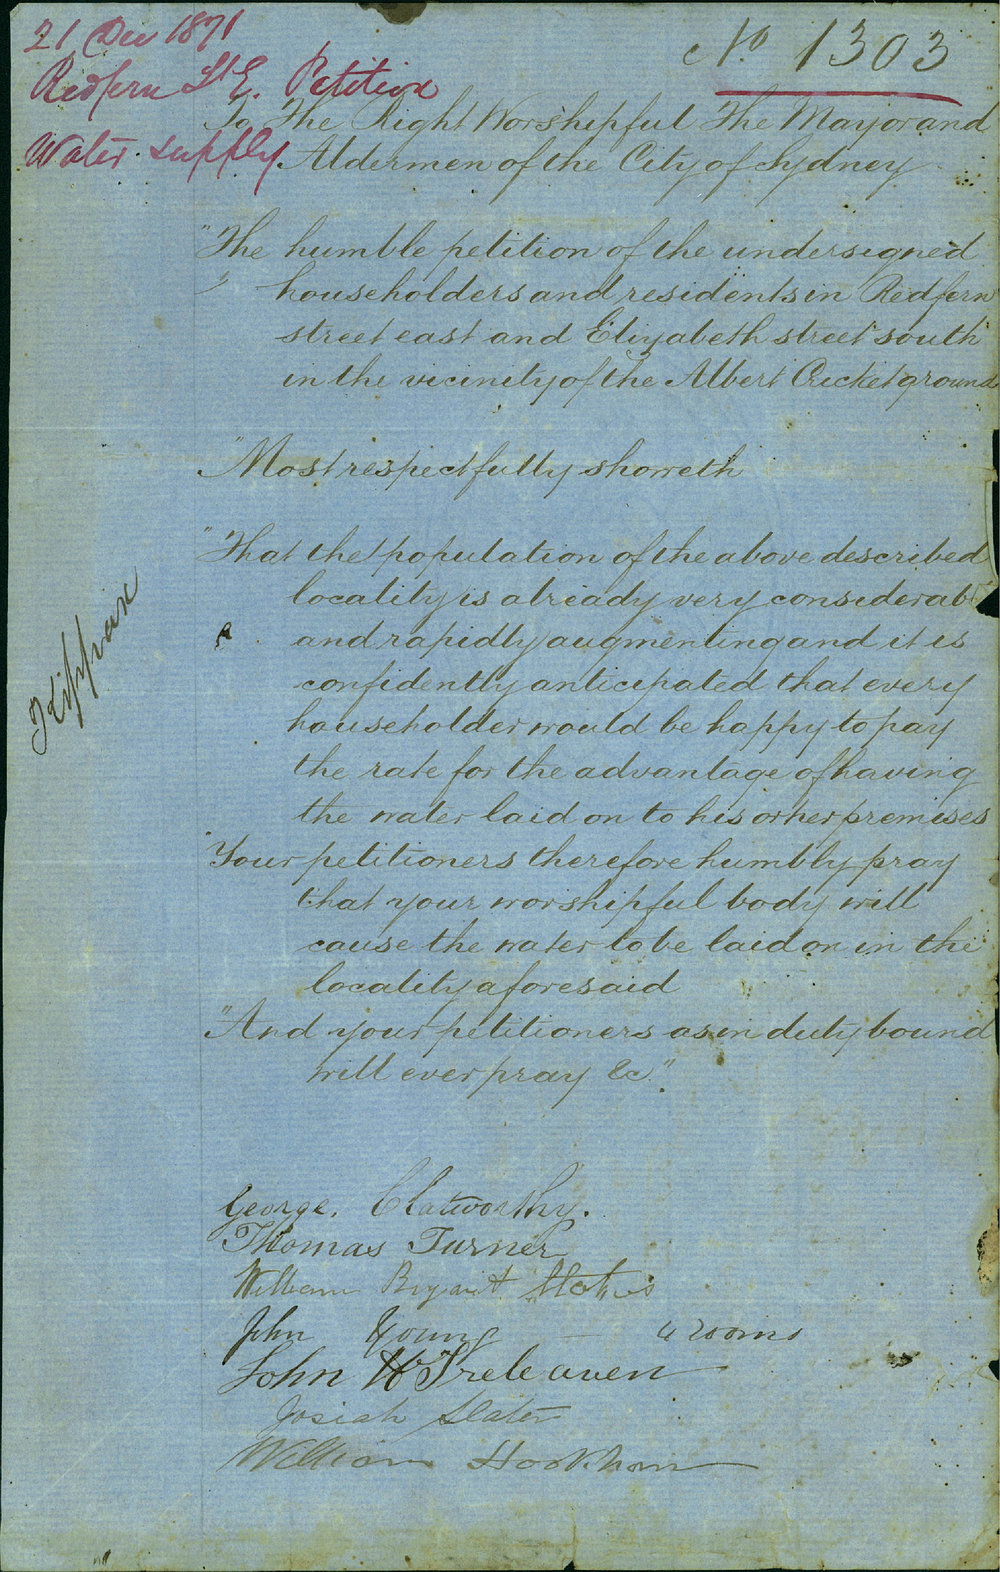 21 Dec 1871
Redfern St E. Petition
Water supply
No. 1303
To The Right Worshipful The Mayor and
Aldermen of the City of Sydney
"The humble petition of the undersigned
" householders and residents in Redfern
street east and Elizabeth street south
in the vicinity of the Albert Cricket ground
"Most respectfully showeth
"That the population of the above described
locality is already very considerabl
and rapidly augmenting and it is
confidently anticipated that every
householder would be happy to pay
the rate for the advantage of having
the water laid on to his or her premises
"Your petitioners therefore humbly pray
that your worshipful body will
cause the water to be laid on in the
locality aforesaid
"And your petitioners as in duty bound
will ever pray &c"
George. Clatworthy.
Thomas Turner
William Bryant
John Young — 4 rooms
John W Treleaven
Josiah Slater
William Hookham